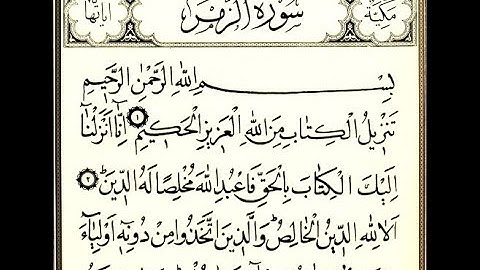 مكية سورة الزمر آياتها
بِسْمِ اللهِ الرَّحْمٰنِ الرَّحِيمِ
تَنْزِيلُ الْكِتَابِ مِنَ اللهِ الْعَزِيزِ الْحَكِيمِ ١ اِنَّٓا اَنْزَلْنَٓا
اِلَيْكَ الْكِتَابَ بِالْحَقِّ فَاعْبُدِ اللهَ مُخْلِصًا لَهُ الدِّينَ ٢
اَلَا لِلهِ الدِّينُ الْخَالِصُ وَالَّذِينَ اتَّخَذُوا مِنْ دُونِهٖٓ اَوْلِيَٓاءَ